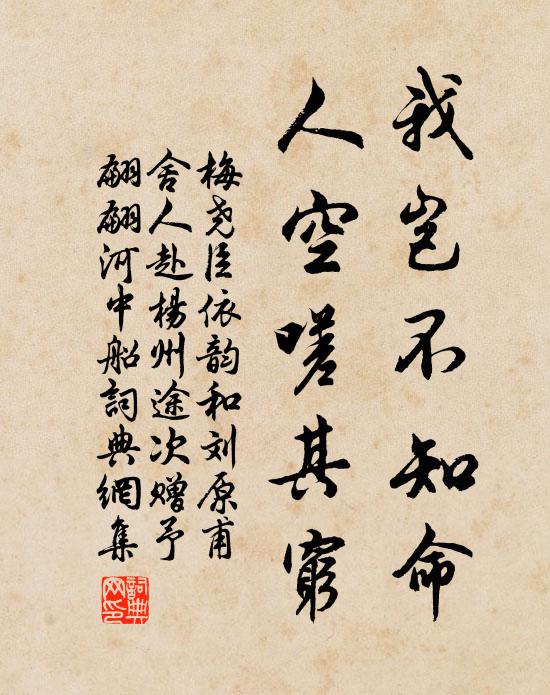 我岂不知命
人空嗟其窮
梅尧臣依韵和刘原甫
舍人赴楊州途次赠予
翩翩河中船詞典網集
詞典网印